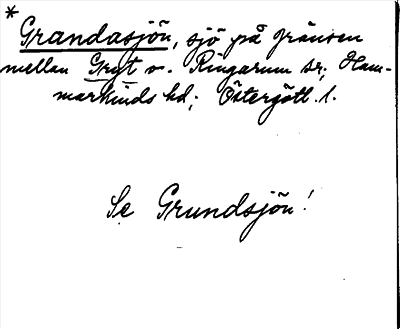 * Grandasjön, sjö på gränsen
mellan Gryt o. Ringarum sr; Ham-
markinds hd; Östergötl. l.
Se Grundsjön!